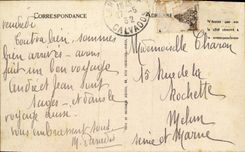 CORRESPONDANCE
vendredi
Toutva bien, sommes
bien arrivés - avons
fait un bon voyage
André et Jean sont
sages - et dans le
voyage aussi.
Vous embrassent tous
CALVADOS
Mademoiselle Charon
15 Rue de la
Rochette
Melun
Seine et Marne